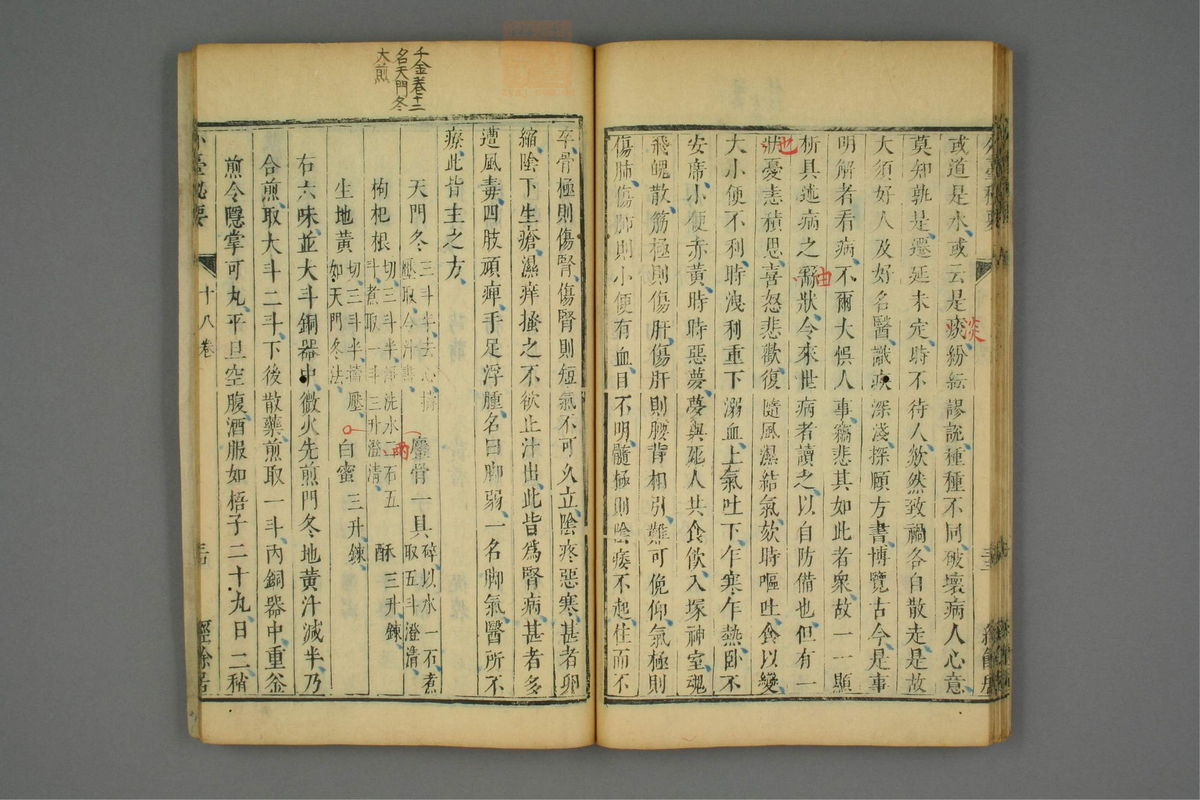 或道是水或云是痰紛紜謬說種種不同破壞病人心意
莫知孰是遷延未定時不待人欻然致禍各自散走是故
大須好人及好名醫識疾深淺探賾方書博覽古今是事
明解者看病不爾大悞人事竊悲其如此者衆故一一顯
析具述病之繇狀令來世病者讀之以自防備也但有一
狀憂恚積思喜怒悲歡復隨風濕結氣欬時嘔吐食以變
大小便不利時洩利重下溺血上氣吐下乍寒乍熱臥不
安席小便赤黃時時惡夢夢與死人共食飲入塚神室魂
飛魄散筋極則傷肝傷肝則腰背相引難可俛仰氣極則
傷肺傷肺則小便有血目不明髓極則陰痿不起住而不
卒骨極則傷腎傷腎則短氣不可久立陰疼惡寒甚者卵
縮陰下生瘡濕痒搔之不欲止汁出此皆爲腎病甚者多
遭風毒四肢頑痺手足浮腫名曰脚弱一名脚氣醫所不
療此皆主之方
天門冬三斗半去心擣壓取今汁盡 麞骨一具碎以水一石煮取五斗澄清
枸杞根切三斗半淨洗水二石五斗煮取一斗三升澄清 酥三升鍊
生地黃切三斗半擣壓如天門冬法 白蜜三升鍊
右六味並大斗銅器中微火先煎門冬地黃汁減半乃
合煎取大斗二斗下後散藥煎取一斗內銅器中重釜
煎令隱掌可丸平旦空腹酒服如梧子二十九日二稍
十八卷
經餘居
千金卷十二
名天門冬
大煎
痰
由
也
兩